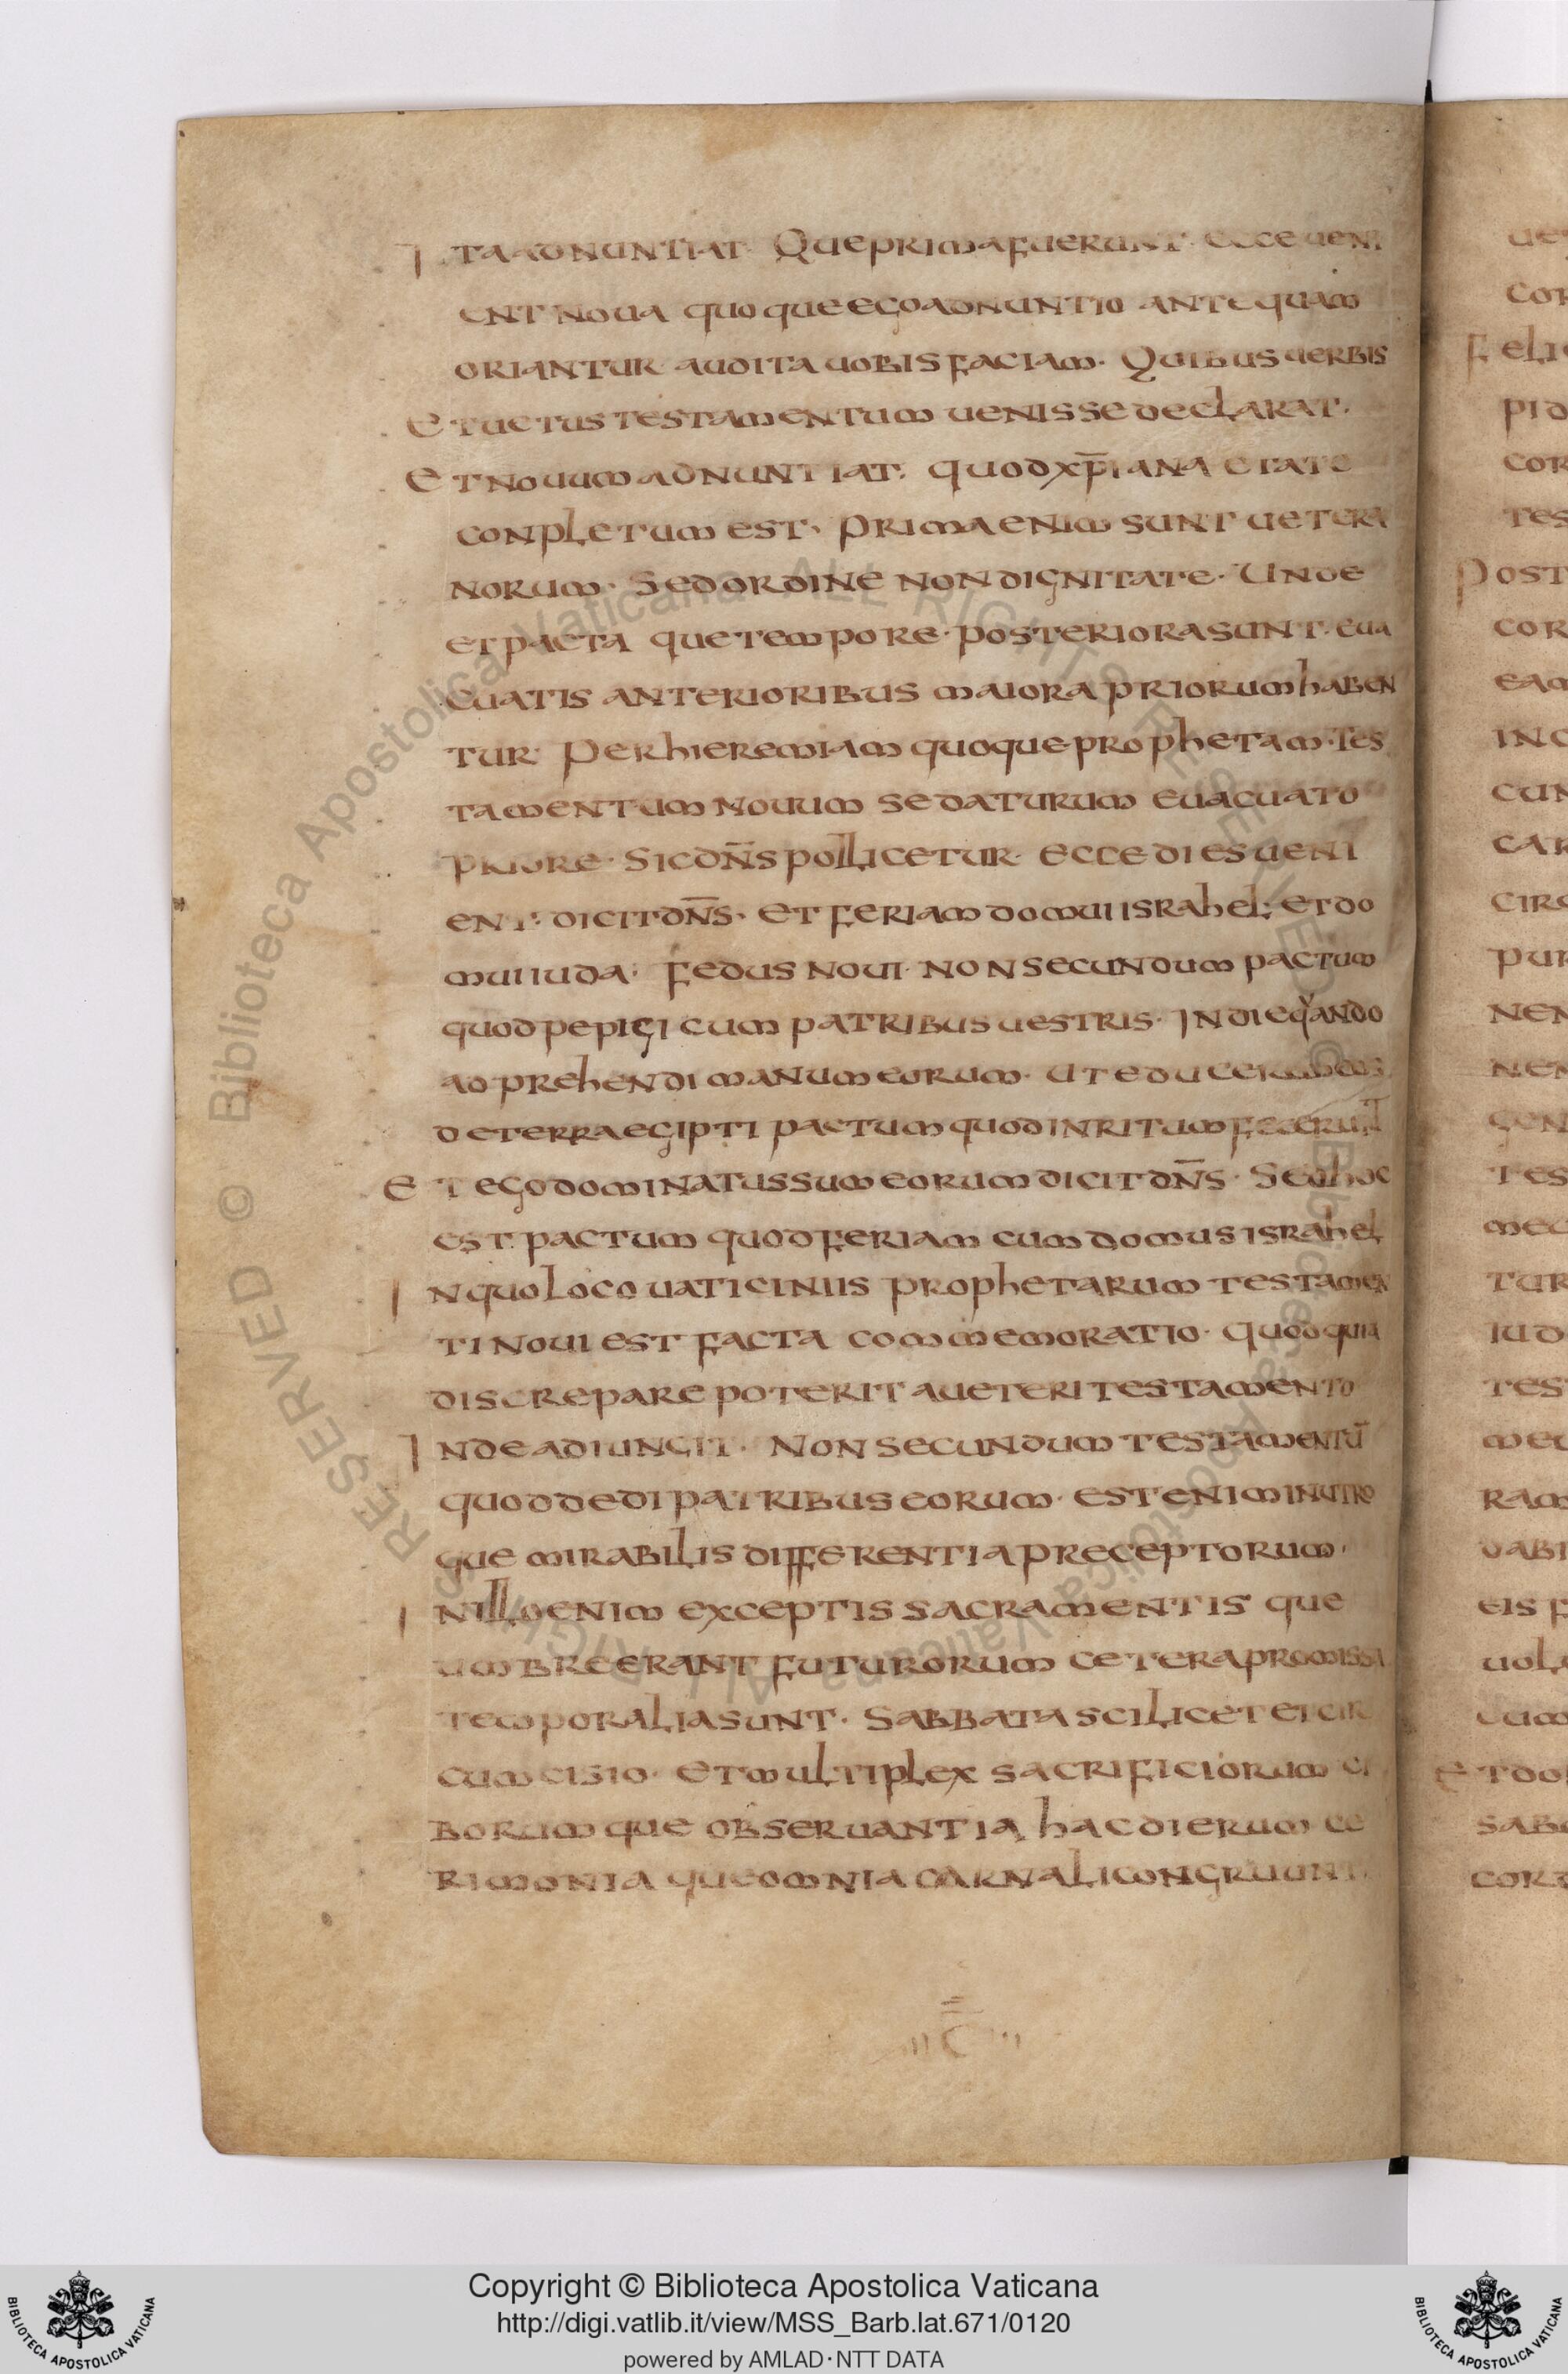 Ita adnuntiat. Que prima fuerunt. ecce ueni
ent noua quoque ego adnuntio antequam
oriantur audita uobis faciam. Quibus uerbis
Et uetus testamentum uenisse declarat.
Et nouum adnuntiat. quod xp̄iana etate
conpletum est. Prima enim sunt uetera
norum. Sed ordine non dignitate. Unde
et pacta que tempore. posteriora sunt. eua
cuatis anterioribus maiora priorum haben
tur. Per hieremiam quoque prophetam. Tes
tamentum nouum se daturum euacuato
priore. Sic dn̄s pollicetur. ecce dies ueni
ent. dicit dn̄s. et feriam domui israhel. et do
mui iuda. fedus noui. non secundum pactum
quod pepigi cum patribus uestris. In die qando
adprehendi manum eorum. ut educerem eos
de terra egipti pactum quod inritum fecerunt
Et ego dominatus sum eorum dicit dn̄s. Sed hoc
est pactum quod feriam cum domus israhel
In quo loco uaticiniis prophetarum testamen
ti noui est facta commemoratio. quod quia
discrepare poterit a ueteri testamento
Inde adiungit. Non secundum testamentū
quod dedi patribus eorum. est enim in utro
que mirabilis differentia preceptorum.
In illo enim exceptis sacramentis que
umbre erant futurorum cetera promissa
temporalia sunt. Sabbata scilicet et cir
cumcisio. et multiplex sacrificiorum ci
borumque obseruantia hac dierum ce
rimonia que omnia carnali congruunt
ue
cor
Feli
pid
cor
tes
Post
cor
eam
in c
cun
car
circ
pur
nen
nen
gen
tes
mec
tur
iud
tes
meu
ram
dabi
eis f
uol
cum
et do
sab
cord
© Biblioteca Apostolica Vaticana ALL RIGHTS RESERVED © Biblioteca Apostolica Vaticana ALL RIGHTS RESERVED
Copyright © Biblioteca Apostolica Vaticana
http://digi.vatlib.it/view/MSS_Barb.lat.671/0120
powered by AMLAD·NTT DATA
BIBLIOTECA APOSTOLICA VATICANA
BIBLIOTECA APOSTOLICA VATICANA